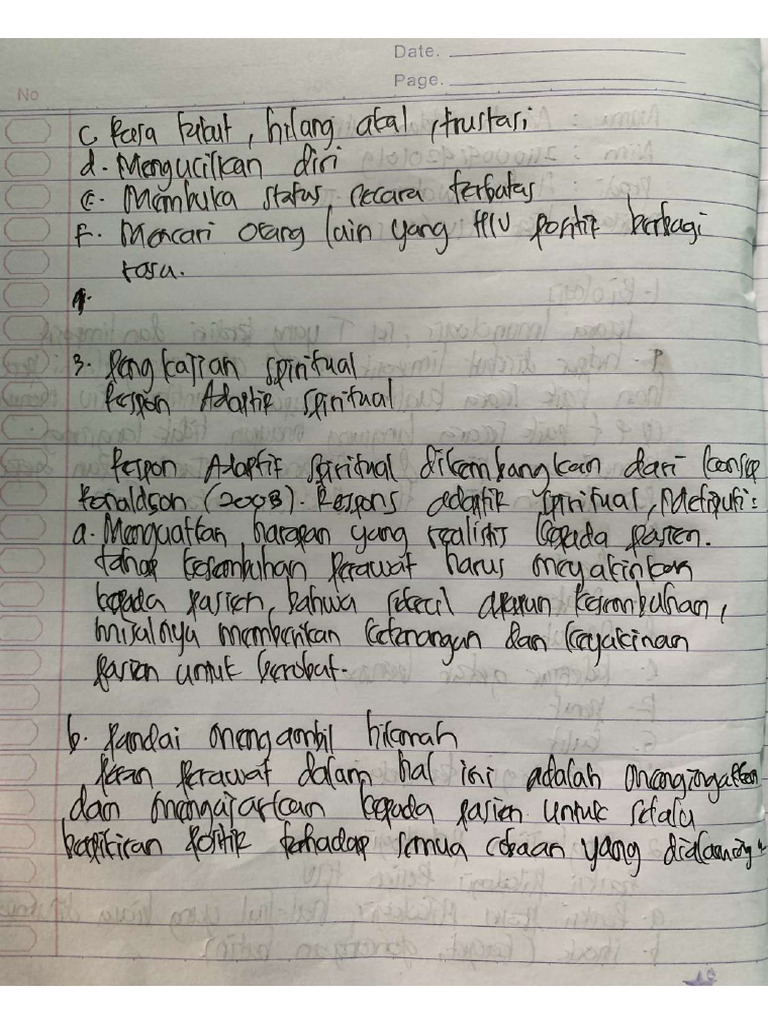 Date.
Page.
No
C. Rasa takut, hilang akal, frustasi
d. Mengucilkan diri
e. Membuka status secara terbatas
f. Mencari orang lain yang HIV positif berbagi
rasa.
3. Pengkajian spiritual
Respon Adaptif spiritual
Respon Adaptif spiritual dikembangkan dari konsep
Ronaldson (2008). Respons adaptif spiritual, Meliputi:
a. Menguatkan harapan yang realistis kepada pasien.
tahap kesembuhan Perawat harus meyakinkan
kepada pasien, bahwa sekecil apapun kesembuhan,
misalnya memberikan ketenangan dan keyakinan
pasien untuk berobat.
b. Pandai mengambil hikmah
Peran Perawat dalam hal ini adalah mengingatkan
dan mengajarkan kepada pasien untuk selalu
berpikiran positif terhadap semua cobaan yang